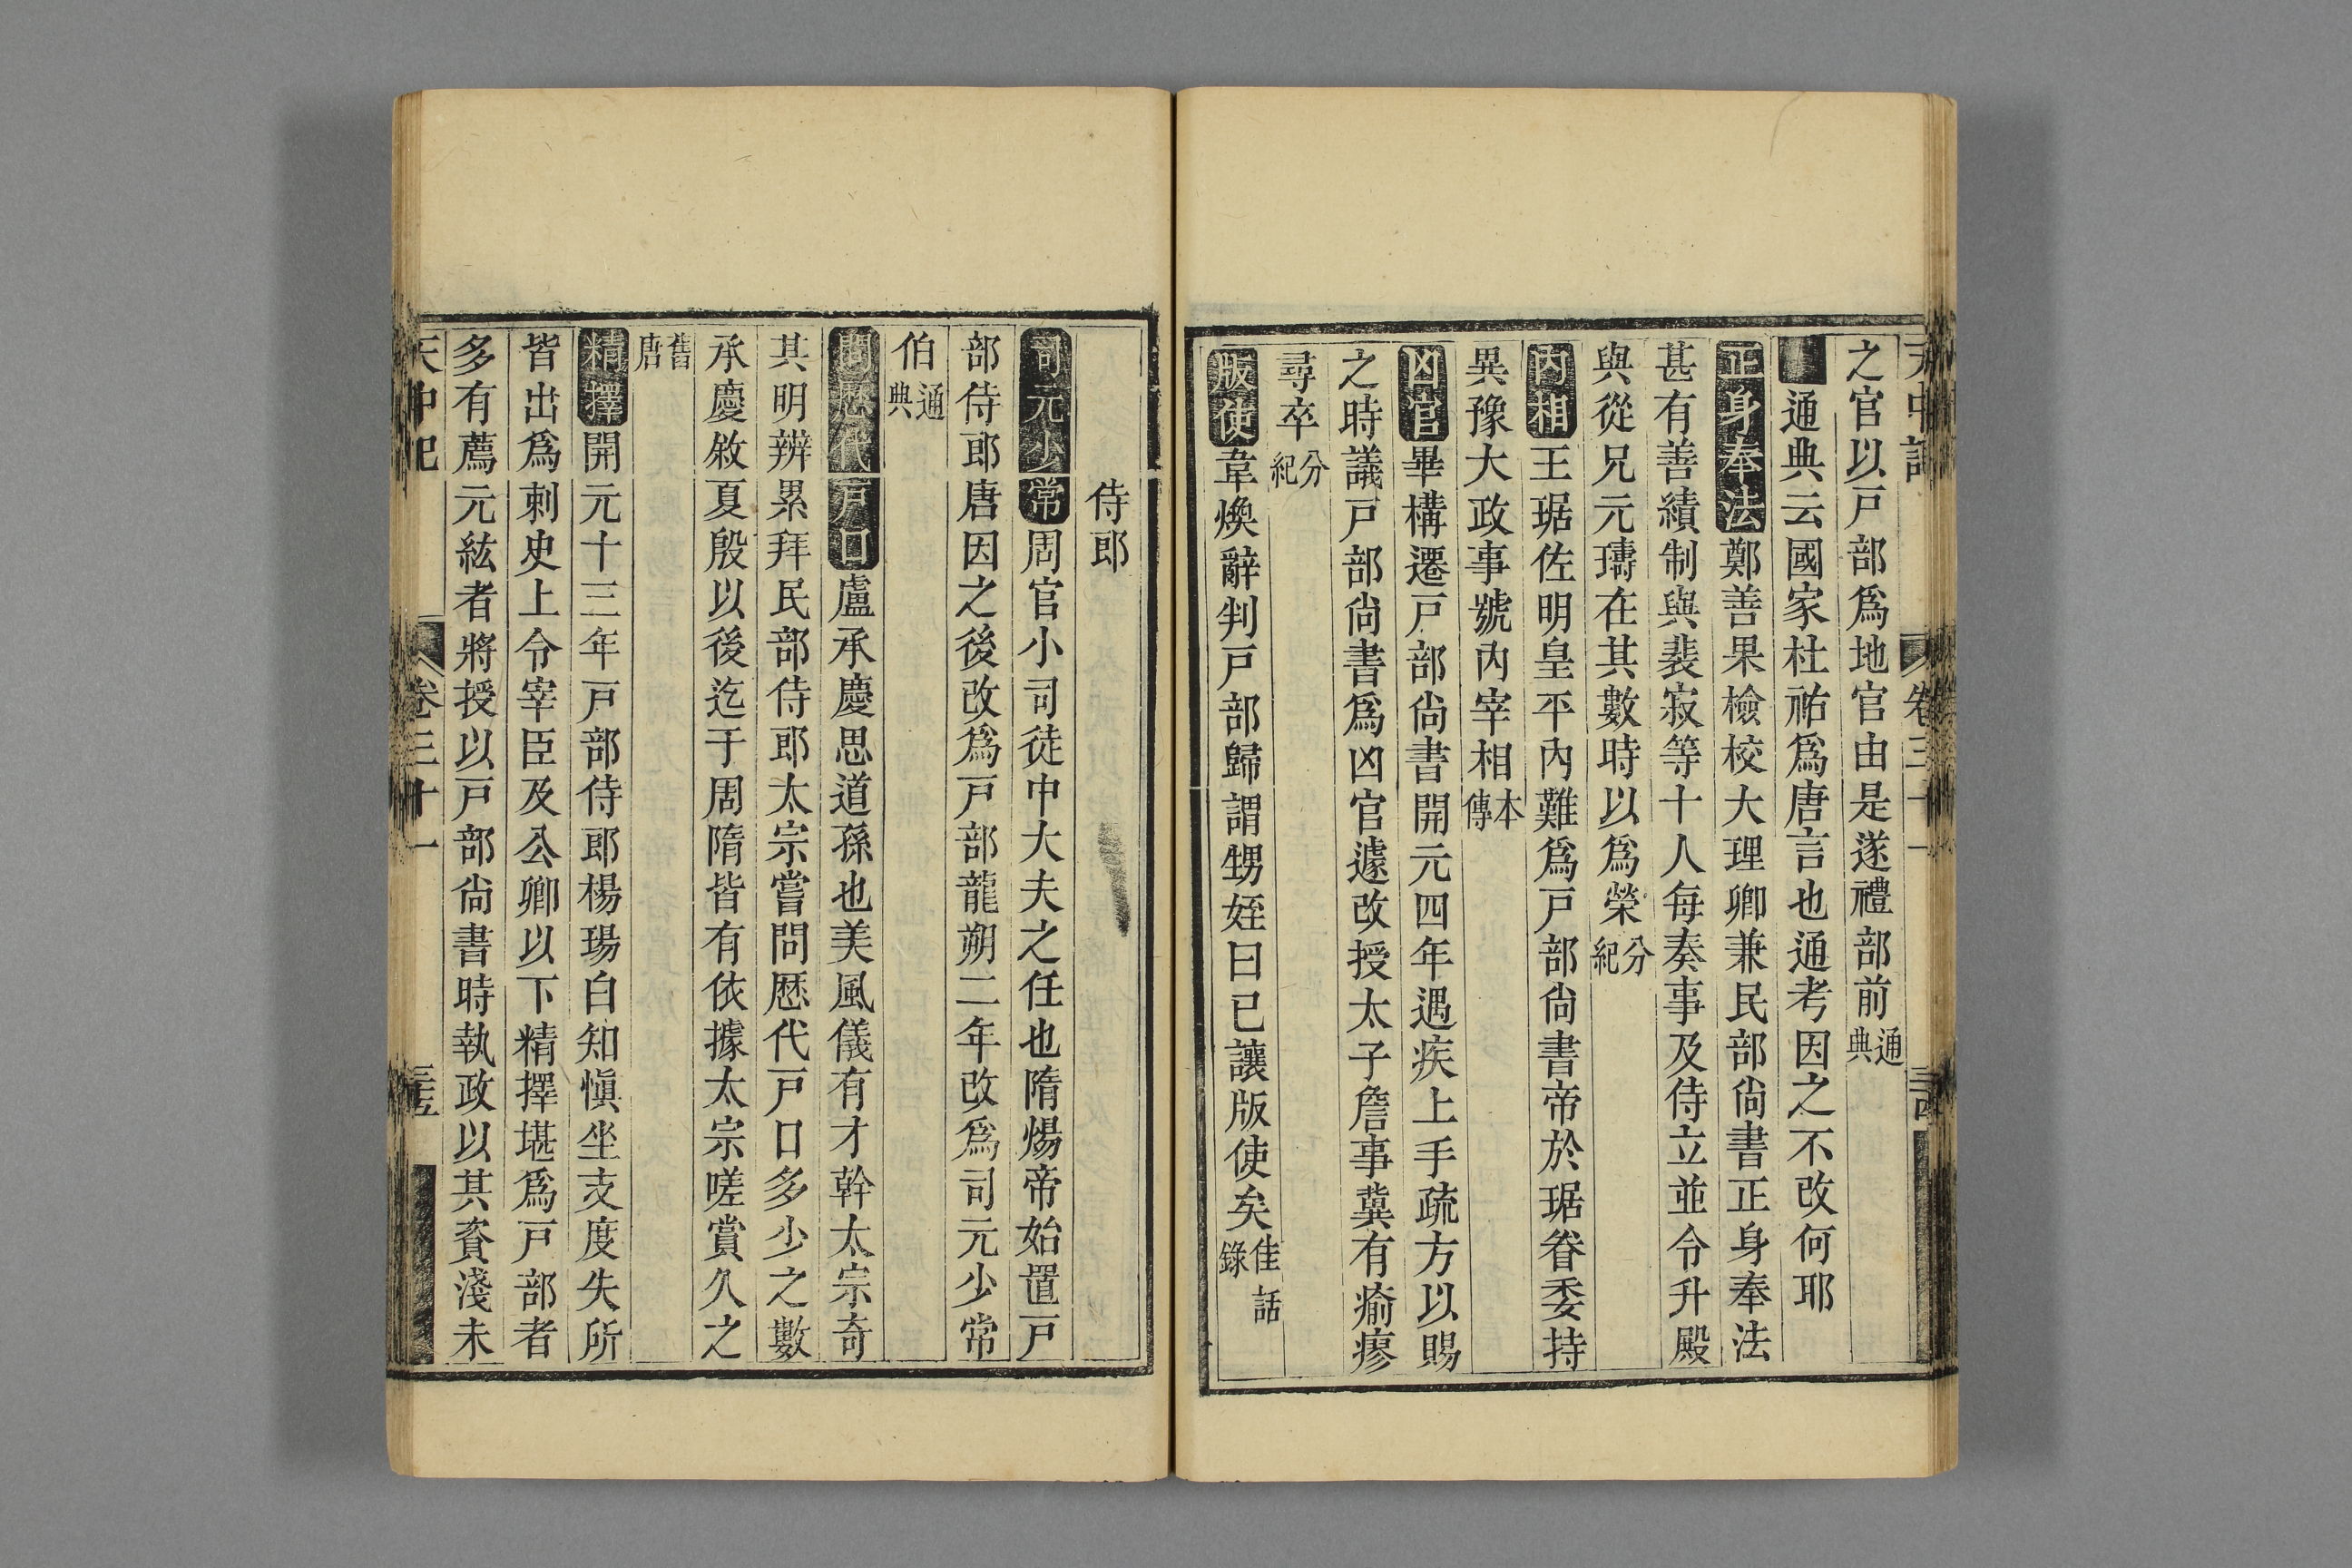 天中記 卷三十一
之官以戸部爲地官由是遂禮部前通典
通典云國家杜祐爲唐言也通考因之不改何耶
正身奉法鄭善果檢校大理卿兼民部尚書正身奉法
甚有善績制與裴寂等十人每奏事及侍立並令升殿
與從兄元璹在其數時以爲榮分紀
内相王琚佐明皇平内難爲戸部尚書帝於琚眷委持
異豫大政事號内宰相本傳
凶官畢構遷戸部尚書開元四年遇疾上手疏方以賜
之時議戸部尚書爲凶官遽改授太子詹事冀有瘉瘳
尋卒分紀
版使韋煥辭判戸部歸謂甥姪曰已讓版使矣佳話錄
侍郎
司元少常周官小司徒中大夫之任也隋煬帝始置戸
部侍郎唐因之後改爲戸部龍朔二年改爲司元少常
伯通典
問歷代戸口盧承慶思道孫也美風儀有才幹太宗奇
其明辨累拜民部侍郎太宗嘗問歷代戸口多少之數
承慶敘夏殷以後迄于周隋皆有依據太宗嗟賞久之
舊唐
精擇開元十三年戸部侍郎楊瑒白知愼坐支度失所
皆出爲刺史上令宰臣及公卿以下精擇堪爲戸部者
多有薦元紘者將授以戸部尚書時執政以其資淺未
天中記 卷三十一 三五